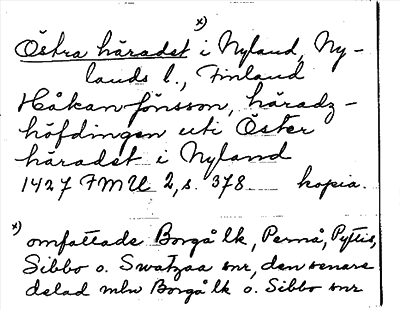 x)
Östra häradet i Nyland, Ny-
lands l., Finland
Håkan Jönsson, häradz-
höfdingen uti Öster
häradet i Nyland
1427 FMU 2, s. 378 kopia.
x) omfattade Borgå lk, Pernå, Pyttis,
Sibbo o. Swatzaa snr, den senare
delad mln Borgå lk o. Sibbo snr